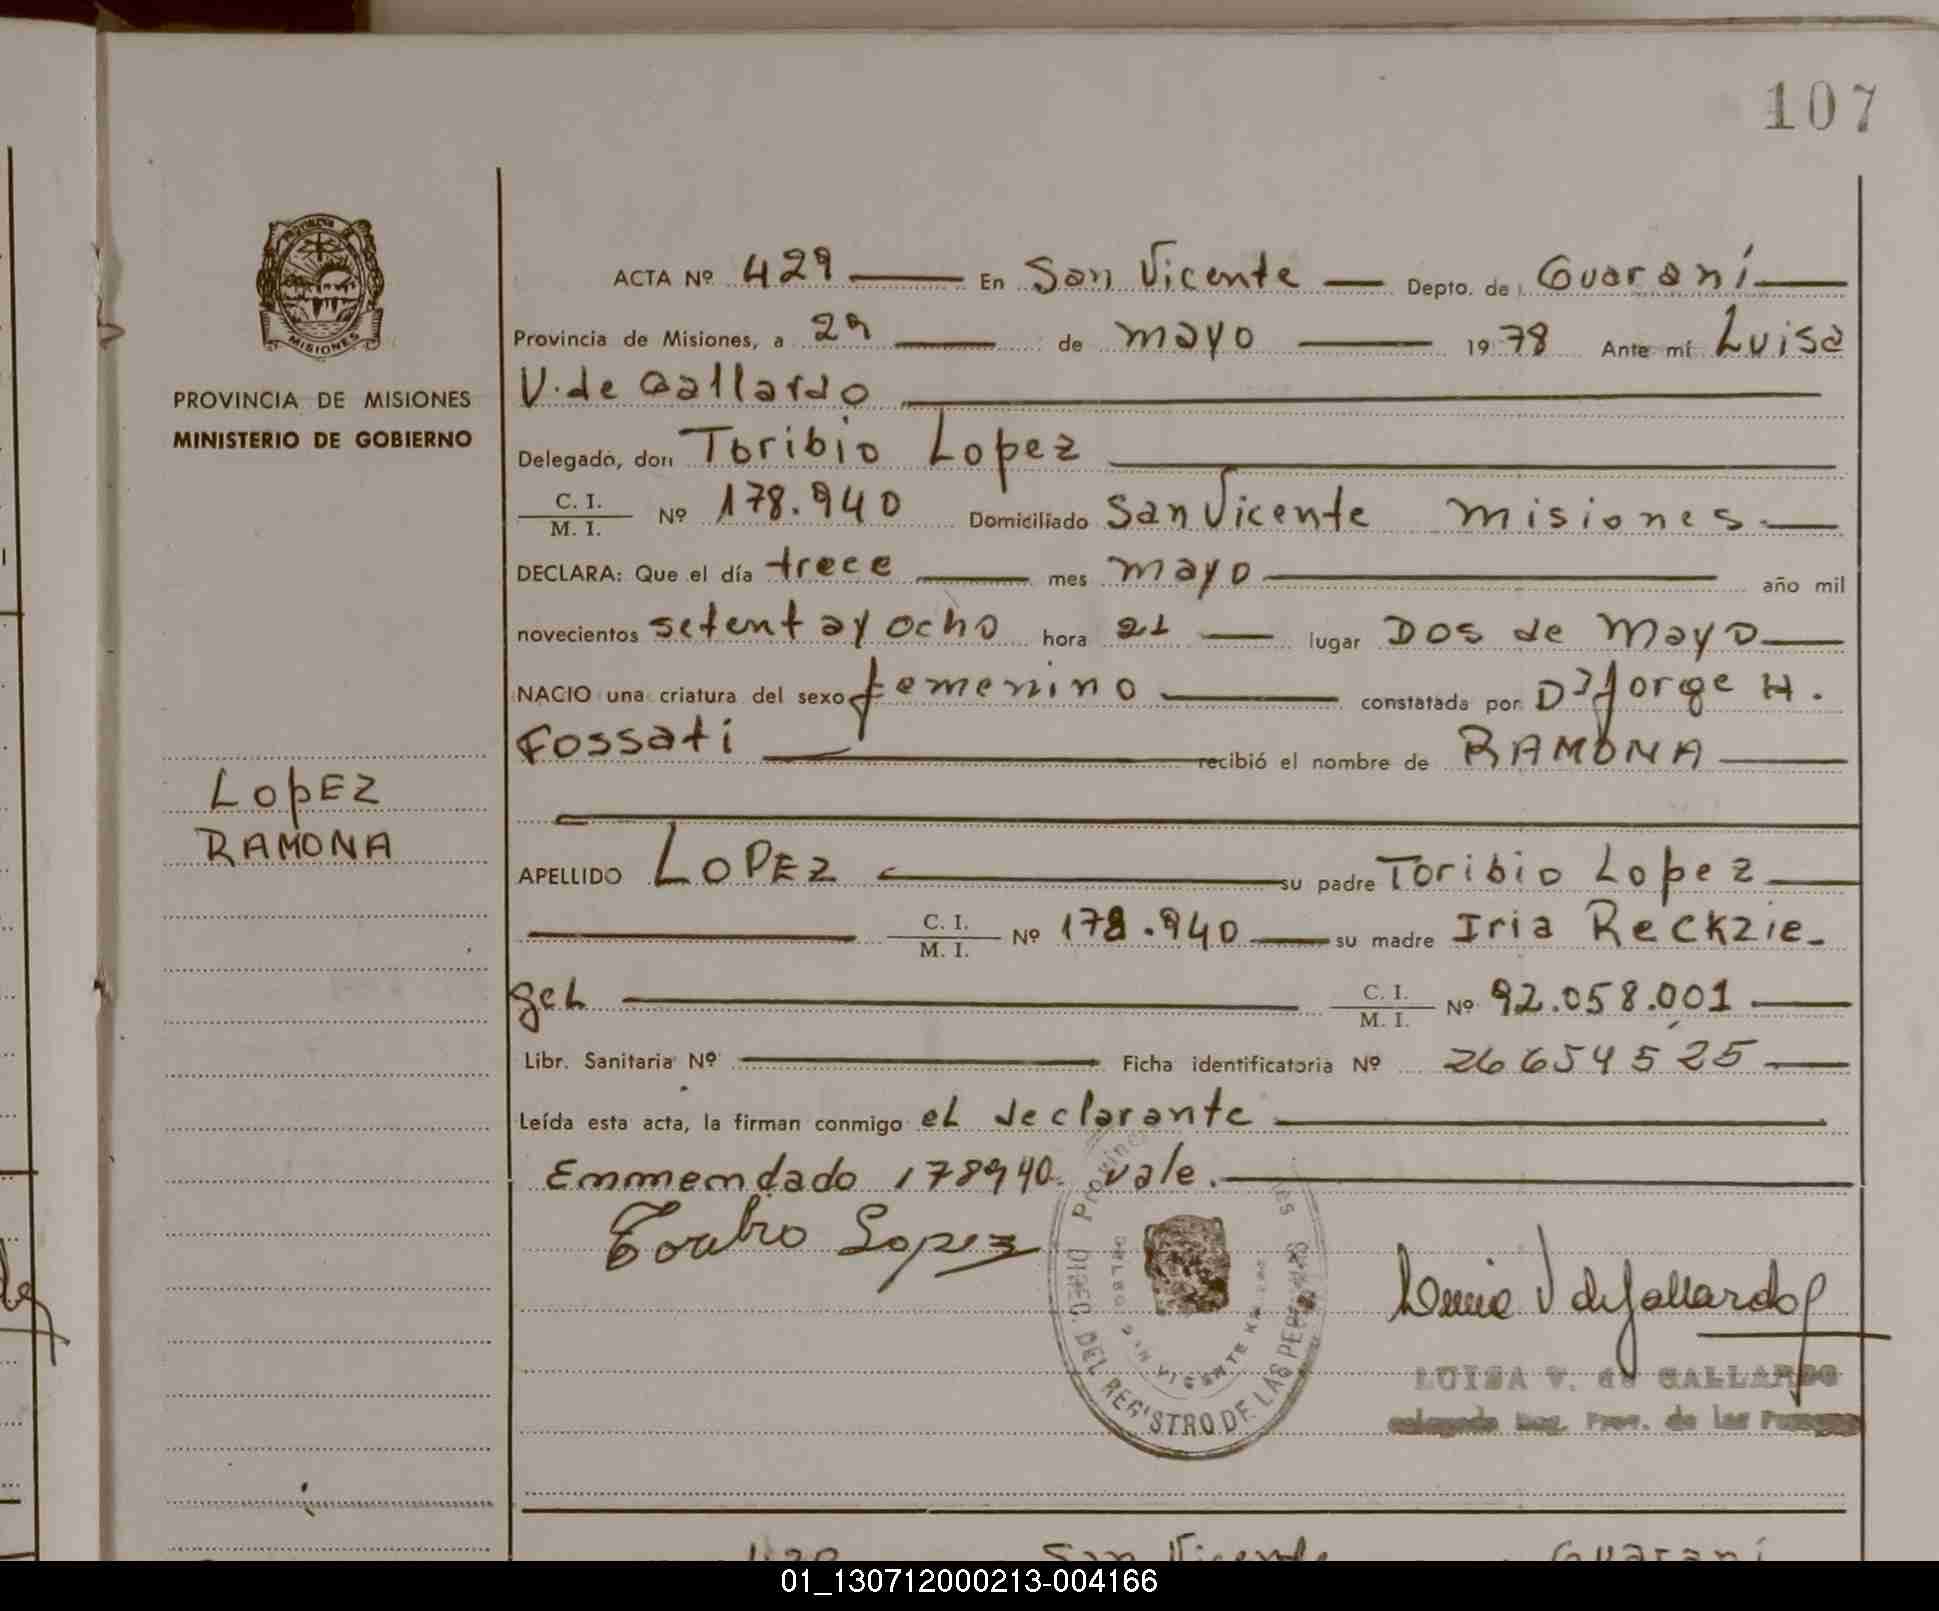 107
MISIONES
PROVINCIA DE MISIONES
MINISTERIO DE GOBIERNO
LOPEZ
RAMONA
ACTA Nº 429 En San Vicente Depto. de Guaraní
Provincia de Misiones, a 29 de mayo 1978 Ante mí Luisa
V. de Gallardo
Delegado, don Toribio Lopez
C. I. / M. I. Nº 178.940 Domiciliado San Vicente Misiones
DECLARA: Que el día trece mes mayo año mil
novecientos setentayocho hora 21 lugar Dos de Mayo
NACIO una criatura del sexo femenino constatada por Dr Jorge H.
Fossati recibió el nombre de RAMONA
APELLIDO LOPEZ su padre Toribio Lopez
C. I. / M. I. Nº 178.940 su madre Iria Reckzie-
gel C. I. / M. I. Nº 92.058.001
Libr. Sanitaria Nº Ficha identificatoria Nº 26654525
Leída esta acta, la firman conmigo el declarante
Emmendado 178940. vale.
Toribio Lopez
Luisa V de Gallardo
DIREC. DEL REGISTRO DE LAS PERSONAS
SAN VICENTE
LUISA V. de GALLARDO
San Vicente Guaraní
01_130712000213-004166